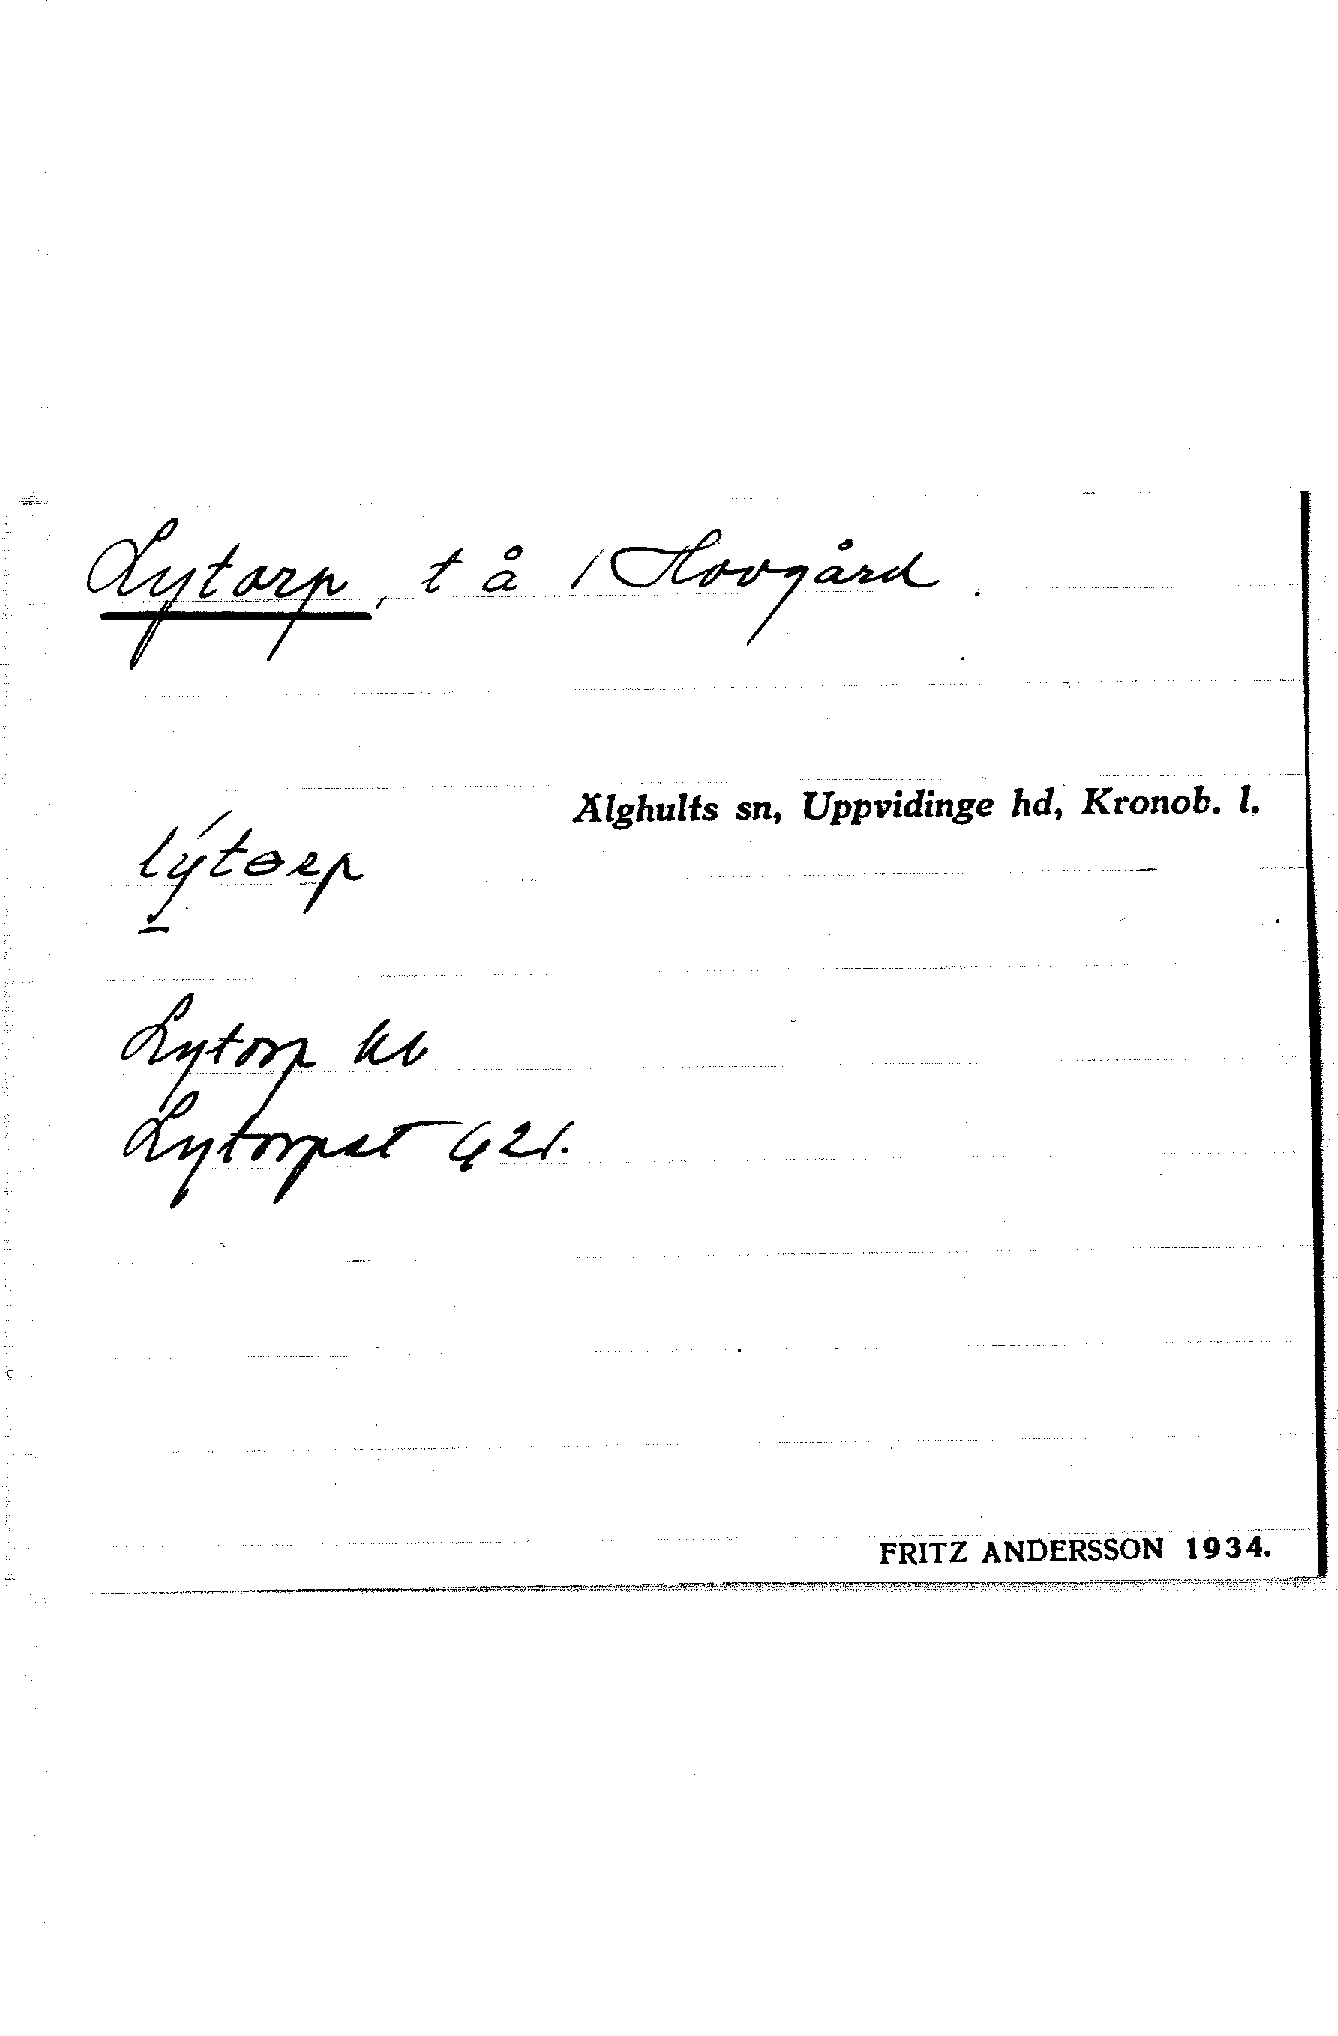 Lytorp, t å 1 Hovgård.
Älghults sn, Uppvidinge hd, Kronob. l.
lýtɵrp
Lytorp kb
Lytorpat G21.
FRITZ ANDERSSON 1934.